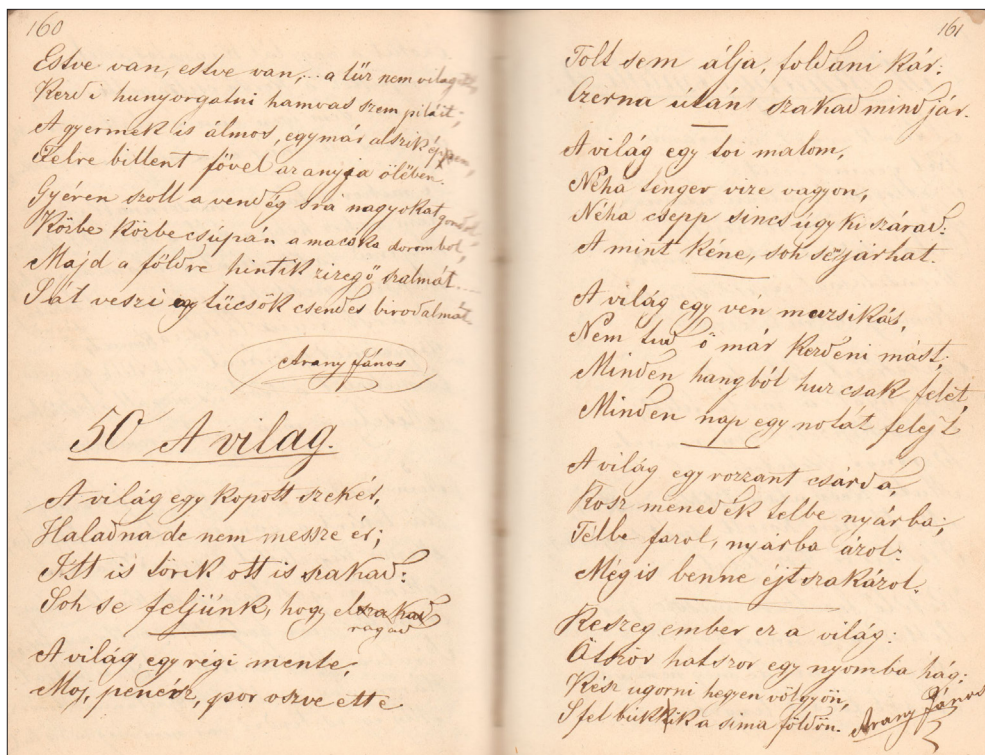 160
Estve van, estve van,.. a tűz nem világit,
Kerdi hunyorgatni hamvad szem piláit;
A gyermek is álmos, egymár alszik éppen,
Felre billent fővel az anyja ölében.
Gyéren szoll a vendég s rá nagyokat gondol,
Körbe körbe csúpán a macska dorombol,
Majd a földre hintik zizegő szalmát....
S át veszi egy tücsök csendes birodalmát
Arany János
50 A vilag.
A világ egy kopott szekér,
Haladna de nem messze ér;
Itt is törik ott is szakad:
Soh se feljünk, hogy elszakad
ragad
A világ egy régi mente,
Moj, penész, por oszve ette
161
Tolt sem álja, foldani kár:
Czerna útáns szakad mind jár.
A világ egy toi malom,
Néha tenger vize vagyon,
Néha csepp sincs úgy ki szárad:
A mint kéne, soh se járhat.
A világ egy vén muzsikás,
Nem tud ő már kezdéni mást;
Minden hangból huz csak felét,
Minden nap egy notát felejt
A világ egy rozzant csárda,
Rosz menedék telbe nyárba;
Télbe fazol, nyárba ázol:
Még is benne éjtszakázol.
Reszeg ember ez a világ:
Ötször hatszor egy nyomba hág;
Kész ugorni hegyen völgyön,
S fel bukkik a sima földön.
Arany János